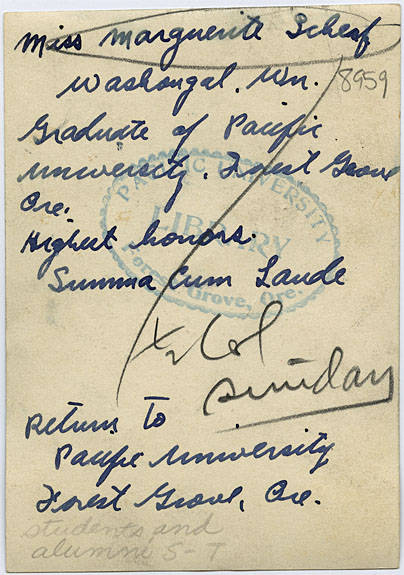 Miss Marguerite Scherf
Washougal, Wn.
8959
Graduate of Pacific
University, Forest Grove
Ore.
Highest honors.
Summa Cum Laude
PACIFIC UNIVERSITY
LIBRARY
Forest Grove, Ore.
½ Col
Sunday
Return to
Pacific University
Forest Grove, Ore.
students and
alumni S-T